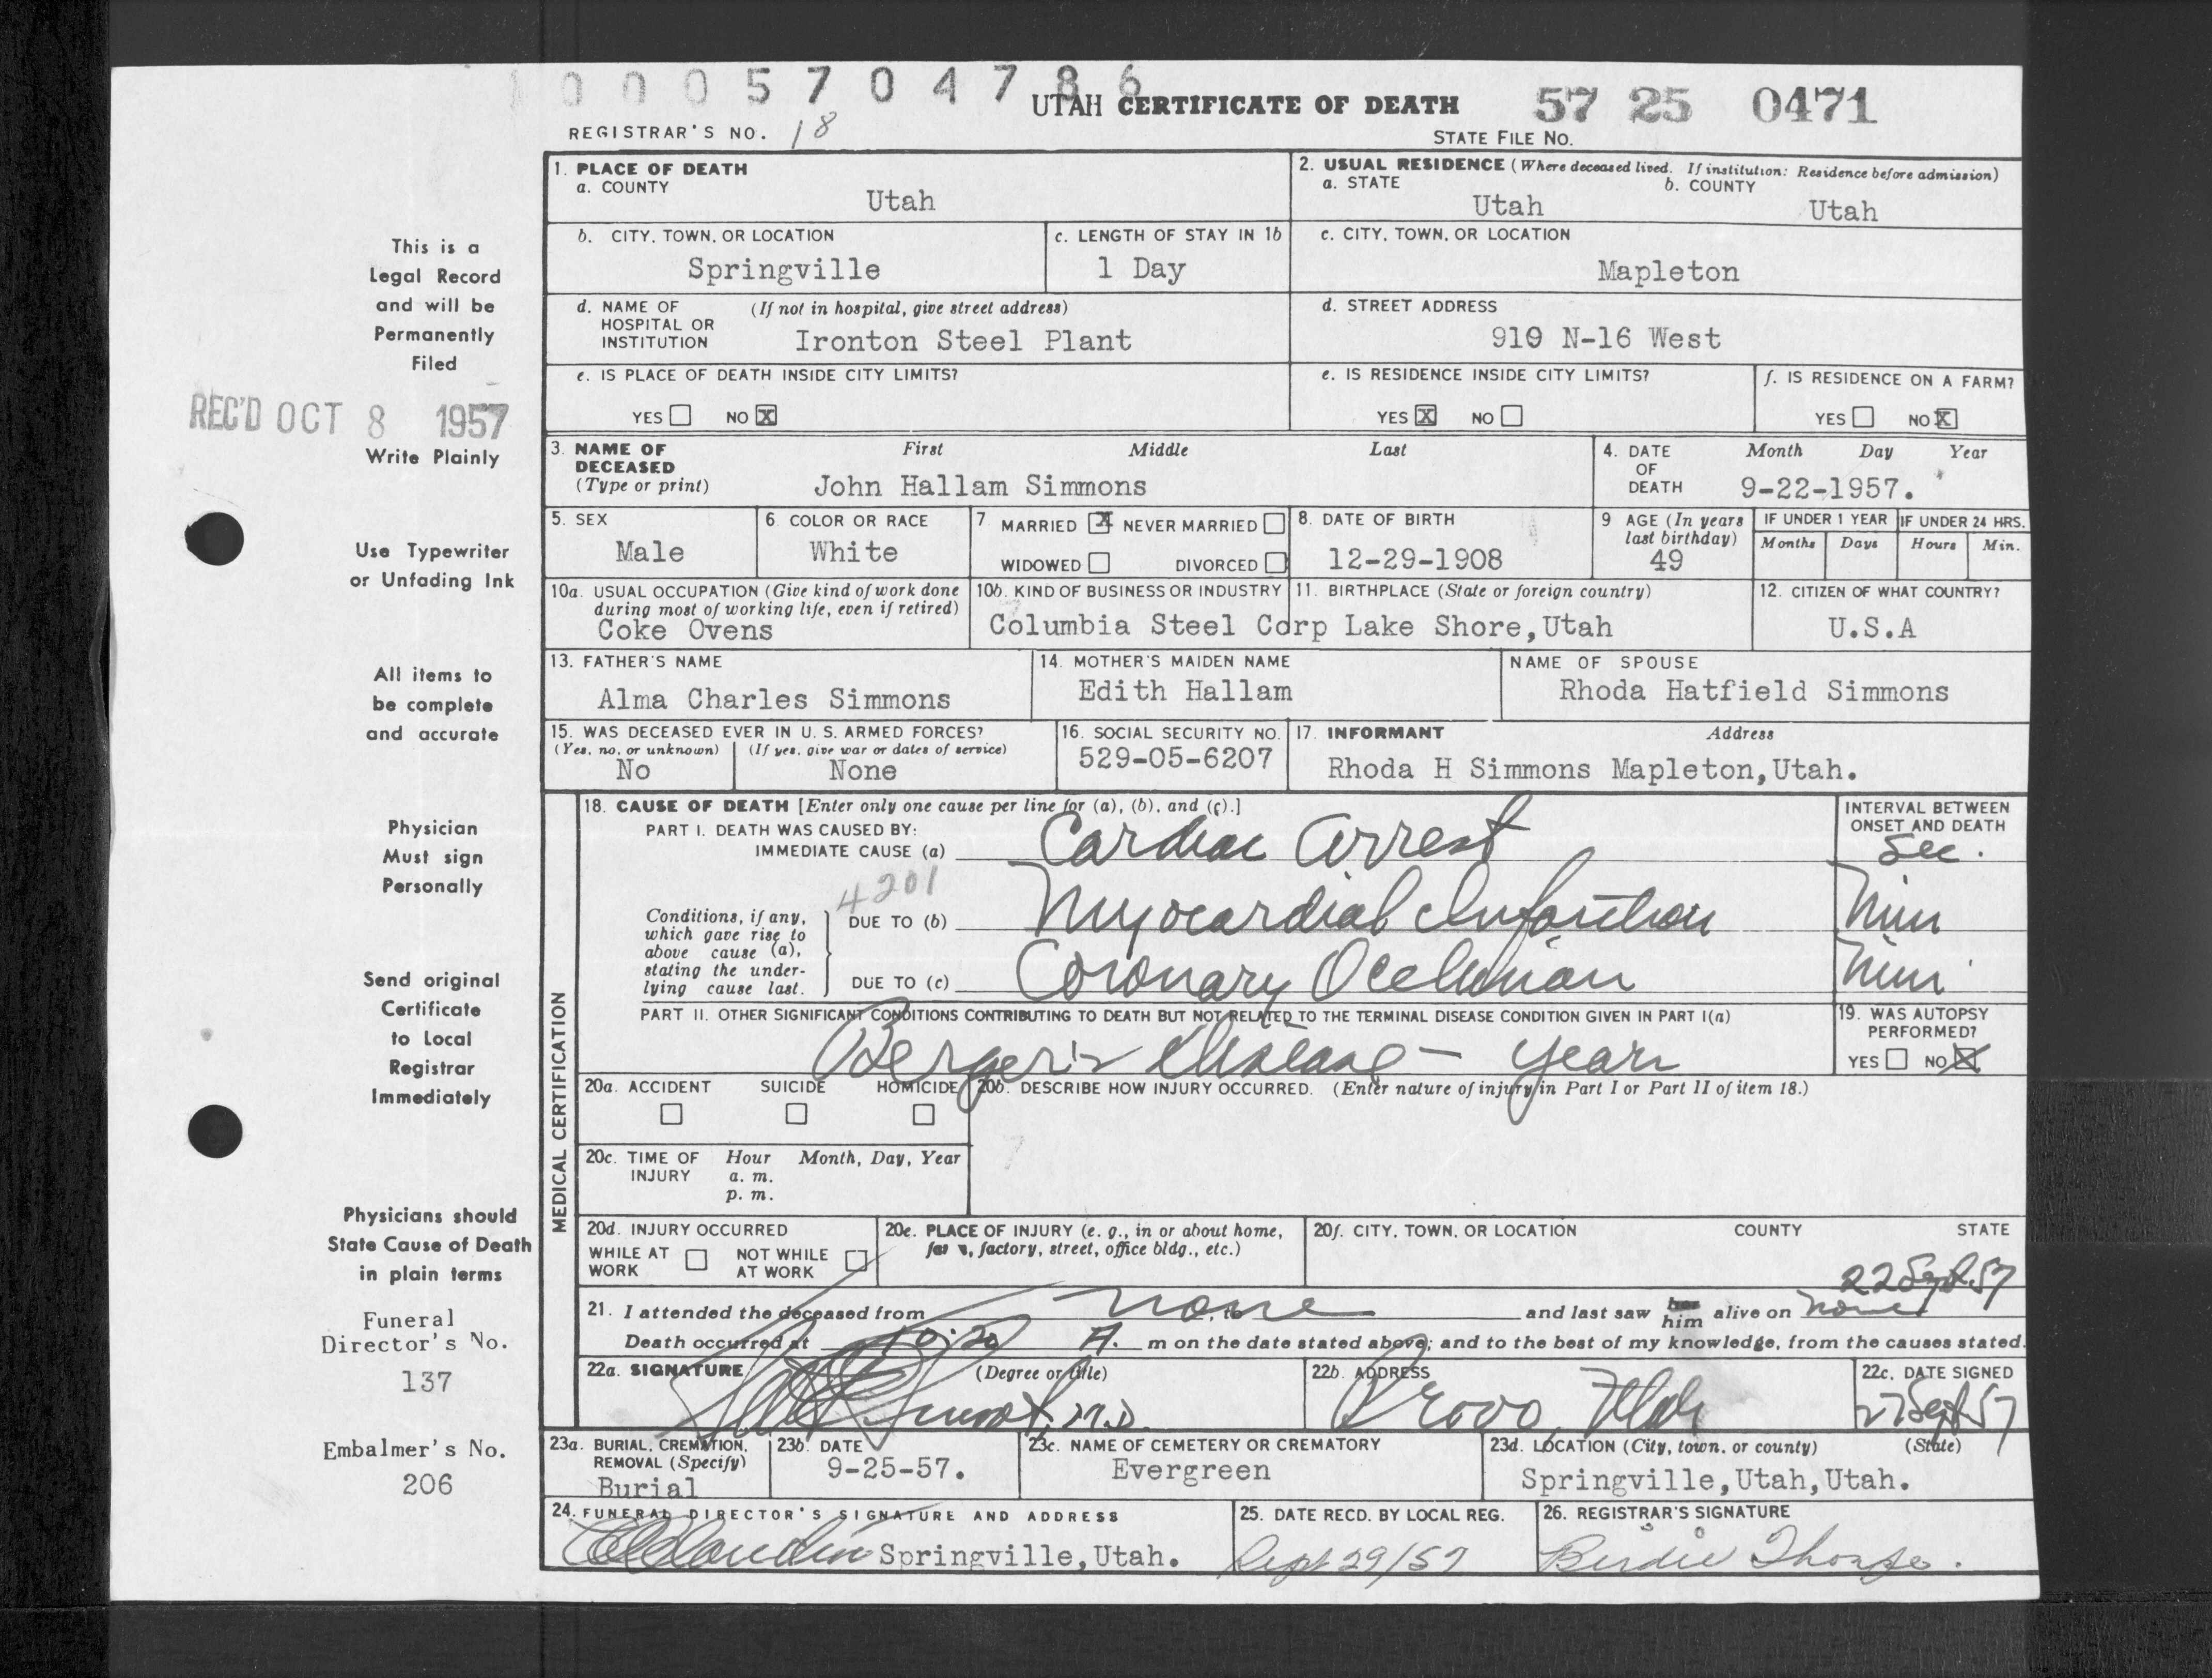 0 0 0 5 7 0 4 7 8 6
UTAH CERTIFICATE OF DEATH 57 25 0471
REGISTRAR'S NO. 18 STATE FILE NO.
1. PLACE OF DEATH
a. COUNTY
Utah
2. USUAL RESIDENCE (Where deceased lived. If institution: Residence before admission)
a. STATE b. COUNTY
Utah Utah
b. CITY, TOWN, OR LOCATION
Springville
c. LENGTH OF STAY IN 1b
1 Day
c. CITY, TOWN, OR LOCATION
Mapleton
d. NAME OF (If not in hospital, give street address)
HOSPITAL OR
INSTITUTION Ironton Steel Plant
d. STREET ADDRESS
910 N-16 West
e. IS PLACE OF DEATH INSIDE CITY LIMITS?
YES NO X
e. IS RESIDENCE INSIDE CITY LIMITS?
YES X NO
f. IS RESIDENCE ON A FARM?
YES NO X
3. NAME OF First Middle Last
DECEASED
(Type or print) John Hallam Simmons
4. DATE Month Day Year
OF
DEATH 9-22-1957.
5. SEX
Male
6. COLOR OR RACE
White
7 MARRIED X NEVER MARRIED
WIDOWED DIVORCED
8. DATE OF BIRTH
12-29-1908
9 AGE (In years
last birthday)
49
IF UNDER 1 YEAR IF UNDER 24 HRS.
Months Days Hours Min.
10a. USUAL OCCUPATION (Give kind of work done
during most of working life, even if retired)
Coke Ovens
10b. KIND OF BUSINESS OR INDUSTRY
Columbia Steel Corp
11. BIRTHPLACE (State or foreign country)
Lake Shore,Utah
12. CITIZEN OF WHAT COUNTRY?
U.S.A
13. FATHER'S NAME
Alma Charles Simmons
14. MOTHER'S MAIDEN NAME
Edith Hallam
NAME OF SPOUSE
Rhoda Hatfield Simmons
15. WAS DECEASED EVER IN U. S. ARMED FORCES?
(Yes, no, or unknown) (If yes, give war or dates of service)
No None
16. SOCIAL SECURITY NO.
529-05-6207
17. INFORMANT Address
Rhoda H Simmons Mapleton,Utah.
MEDICAL CERTIFICATION
18. CAUSE OF DEATH [Enter only one cause per line for (a), (b), and (c).]
PART I. DEATH WAS CAUSED BY:
IMMEDIATE CAUSE (a) Cardiac Arrest
INTERVAL BETWEEN
ONSET AND DEATH
Sec.
4201
Conditions, if any,
which gave rise to
above cause (a),
stating the under-
lying cause last.
DUE TO (b) Myocardial Infarction Min
DUE TO (c) Coronary Occlusion Min
PART II. OTHER SIGNIFICANT CONDITIONS CONTRIBUTING TO DEATH BUT NOT RELATED TO THE TERMINAL DISEASE CONDITION GIVEN IN PART I(a)
Berger's disease - years
19. WAS AUTOPSY
PERFORMED?
YES NO X
20a. ACCIDENT SUICIDE HOMICIDE
20b. DESCRIBE HOW INJURY OCCURRED. (Enter nature of injury in Part I or Part II of item 18.)
20c. TIME OF Hour Month, Day, Year
INJURY a. m.
p. m.
20d. INJURY OCCURRED
WHILE AT NOT WHILE
WORK AT WORK
20e. PLACE OF INJURY (e. g., in or about home,
factory, street, office bldg., etc.)
20f. CITY, TOWN, OR LOCATION COUNTY STATE
22 Sept 57
21. I attended the deceased from none, to and last saw her him alive on none
Death occurred at 10:20 A. m on the date stated above; and to the best of my knowledge, from the causes stated.
22a. SIGNATURE (Degree or title)
M.D.
22b. ADDRESS
Provo, Utah
22c. DATE SIGNED
27 Sept 57
23a. BURIAL, CREMATION,
REMOVAL (Specify)
Burial
23b. DATE
9-25-57.
23c. NAME OF CEMETERY OR CREMATORY
Evergreen
23d. LOCATION (City, town, or county) (State)
Springville,Utah,Utah.
24. FUNERAL DIRECTOR'S SIGNATURE AND ADDRESS
Springville,Utah.
25. DATE RECD. BY LOCAL REG.
Sept 29/57
26. REGISTRAR'S SIGNATURE
Birdie Thorpe.
This is a
Legal Record
and will be
Permanently
Filed
REC'D OCT 8 1957
Write Plainly
Use Typewriter
or Unfading Ink
All items to
be complete
and accurate
Physician
Must sign
Personally
Send original
Certificate
to Local
Registrar
Immediately
Physicians should
State Cause of Death
in plain terms
Funeral
Director's No.
137
Embalmer's No.
206